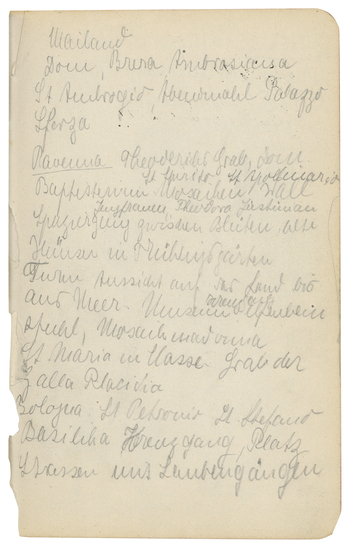 Mailand
Dom, Brera Ambrosiana
St Ambrogio, Abendmahl Palazzo
Sforza
Ravenna Theoderichs Grab, Dom
St Spirito St Apolinario
Baptisterium Mosaiken Wall
Jungfrauen Theodora Justinian
Spaziergang zwischen Blüten, alte
Häuser in Frühlingsgärten
Turm Aussicht auf das Land bis
ans Meer. Museum Elfenbein
Mosaikmadonna
St Maria in Classe Grab der
Galla Placidia
Bologna St Petronio St Stefano
Basilika Kreuzgang, Platz
Strassen mit Laubengängen